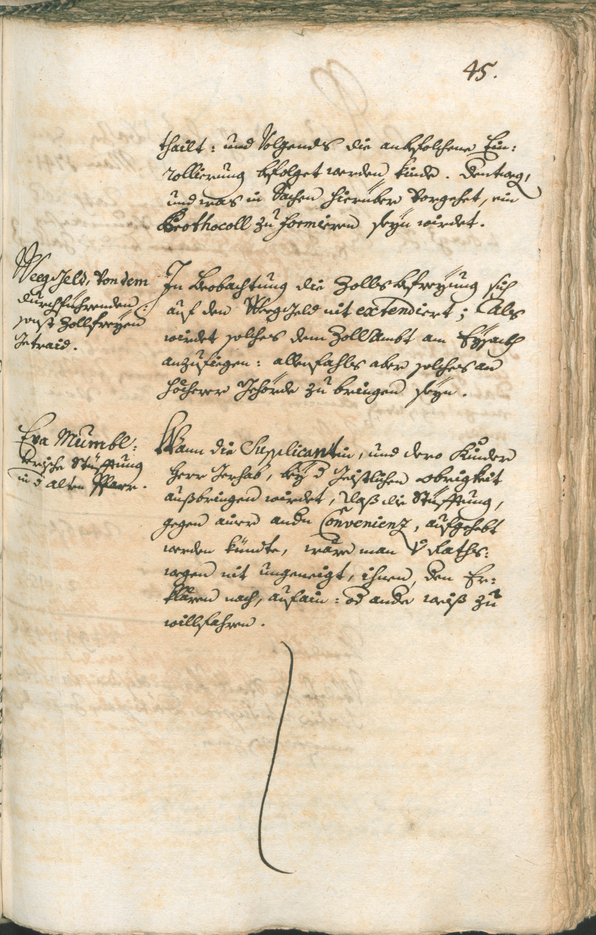 45.
thailt: und Volgends die anbefolchene Ein:
rollierung befolget werden künde. Dentweg,
und was in Sachen hierüber Vorgehet, ein
Prothocoll zu formieren seyn würdet.
Weeg Geld, von dem
durchführenden:
sonst Zollfreyen
Getraid.
In Beobachtung die Zollsbefreyung sich
auf den Weeg Geld nit extendiert; Als
würdet solches dem Zoll Ambt am Eysach
anzufiegen: allenfahls aber solches an
höcherer Gehörde zu bringen seyn.
Eva Mumbl:
terische Stüfftung
in d alten Pfarr.
Wann die Supplicantin, und dero Kinder
Herr Gerhab, bey d Geistlichen obrigkeit
außbringen würdet, daß die Stüfftung,
gegen ainer andn Convenienz, aufgehebt
werden kündte, wäre man V Raths:
wegen nit ungeneigt, ihnen, den Er:
klären nach, auf ain: od andre weiß zu
willfahren.